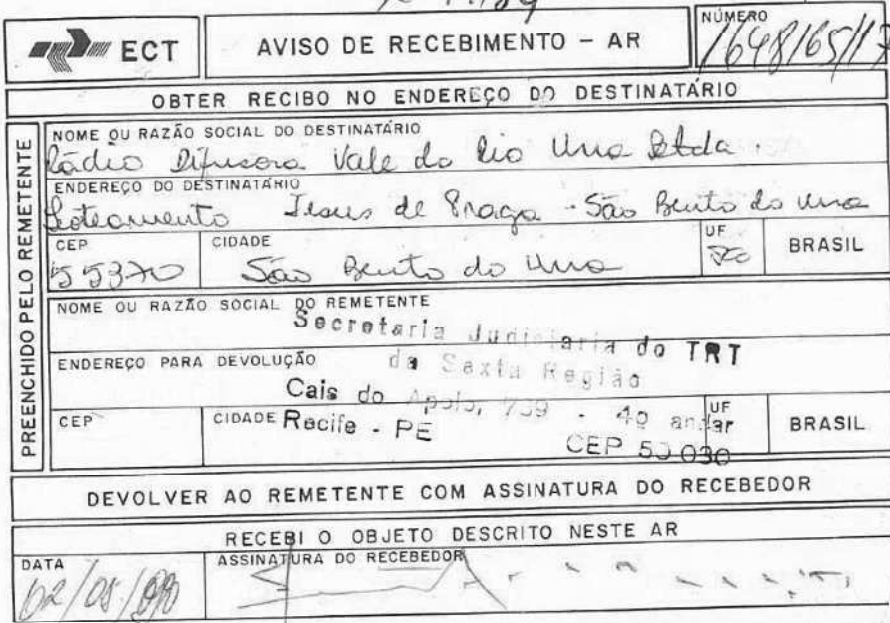 ECT
AVISO DE RECEBIMENTO - AR
NÚMERO
1648165/17
OBTER RECIBO NO ENDEREÇO DO DESTINATÁRIO
PREENCHIDO PELO REMETENTE
NOME OU RAZÃO SOCIAL DO DESTINATÁRIO
Rádio Difusora Vale do Rio Una Ltda.
ENDEREÇO DO DESTINATÁRIO
Loteamento Jesus de Praga - São Bento do Una
CEP CIDADE UF
55370 São Bento do Una PE BRASIL
NOME OU RAZÃO SOCIAL DO REMETENTE
Secretaria Judiciaria do TRT
ENDEREÇO PARA DEVOLUÇÃO
da Sexta Região
Cais do Apolo, 739 - 4º andar
CEP CIDADE Recife - PE UF BRASIL
CEP 50 030
DEVOLVER AO REMETENTE COM ASSINATURA DO RECEBEDOR
RECEBI O OBJETO DESCRITO NESTE AR
DATA ASSINATURA DO RECEBEDOR